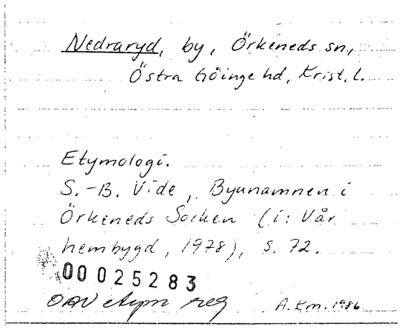 Nedraryd, by, Örkeneds sn,
Östra Göinge hd, Krist. l.
Etymologi.
S.-B. Vide, Bynamnen i
Örkeneds Socken (i: Vår
hembygd, 1978), s. 72.
00025283
OAV etym reg
A.Em. 1986